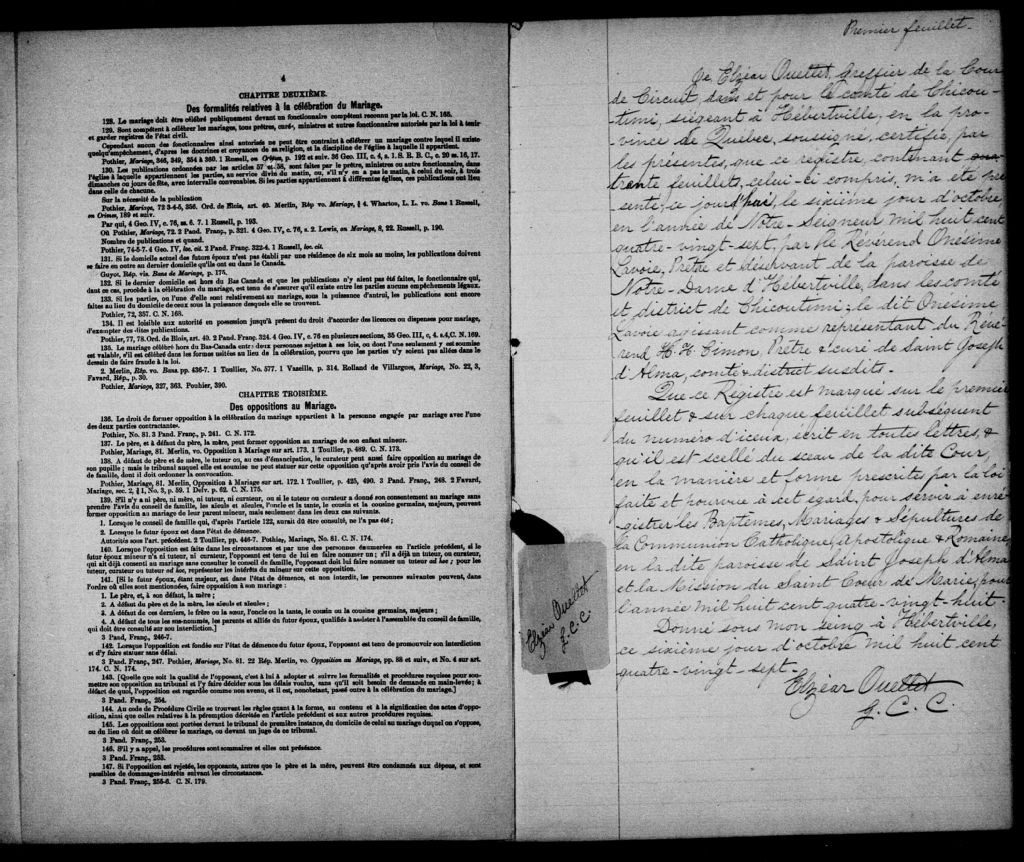 4
CHAPITRE DEUXIÈME.
Des formalités relatives à la célébration du Mariage.
128. Le mariage doit être célébré publiquement devant un fonctionnaire compétent reconnu par la loi. C. N. 165.
129. Sont compétent à célébrer les mariages, tous prêtres, curé, ministres et autres fonctionnaires autorisés par la loi à tenir
et garder registres de l'état civil.
Cependant aucun des fonctionnaires ainsi autorisés ne peut être contraint à célébrer un mariage contre lequel il existe
quelqu'empêchement, d'après les doctrines et croyances de sa religion, et la discipline de l'église à laquelle il appartient.
Pothier, Mariage, 346, 349, 354 à 360. 1 Russell, on Crimes, p. 192 et suiv. 36 Geo. III, c. 4, s. 1. S. R. B. C., c. 20 ss. 16, 17.
130. Les publications ordonnées par les articles 57 et 58, sont faites par le prêtre, ministre ou autre fonctionnaire, dans
l'église à laquelle appartiennent les parties, au service divin du matin, ou, s'il n'y en a pas le matin, à celui du soir, à trois
dimanches ou jours de fête, avec intervalle convenables. Si les parties appartiennent à différentes églises, ces publications ont lieu
dans celle de chacune.
Sur la nécessité de la publication
Pothier, Mariage, 72 3-4-5, 356. Ord. de Blois, art. 40. Merlin, Rép vo. Mariage, § 4. Wharton, L. L. vo. Bans 1 Russell,
on Crimes, 189 et suiv.
Par qui, 4 Geo. IV, c. 76, ss. 6. 7. 1 Russell, p. 193.
Où Pothier, Mariage, 72. 2 Pand. Franç., p. 321. 4 Geo. IV, c. 76, s. 2. Lewis, on Mariage, 8, 22. Russell, p. 190.
Nombre de publications et quand.
Pothier, 74-5-7. 4 Geo. IV, loc. cit. 2 Pand. Franç. 322-4. 1 Russell, loc. cit.
131. Si le domicile actuel des futurs époux n'est pas établi par une résidence de six mois au moins, les publications doivent
se faire en outre au dernier domicile qu'ils ont eu dans le Canada.
Guyot, Rép. vis. Bans de Mariage, p. 175.
132. Si le dernier domicile est hors du Bas Canada et que les publications n'y aient pas été faites, le fonctionnaire qui,
dant ce cas, procède à la célébration du mariage, est tenu de s'assurer qu'il existe entre les parties aucuns empêchements légaux.
133. Si les parties, ou l'une d'elle sont relativement au mariage, sous la puissance d'autrui, les publications sont encore
faites au lieu du domicile de ceux sous la puissance desquels elle se trouvent.
Pothier, 72, 357. C. N. 168.
134. Il est loisible aux autorité en possession jusqu'à présent du droit d'accorder des licences ou dispenses pour mariage,
d'exempter des dites publications.
Pothier, 77, 78. Ord. de Blois, art. 40. 2 Pand. Franç. 324. 4 Geo. IV, c. 76 en plusieurs sections, 35 Geo. III, c. 4, s.4, C. N. 169.
135. Le mariage célébré hors du Bas-Canada entre deux personnes sujettes à ses lois, ou dont l'une seulement y est soumise
est valable, s'il est célébré dans les formes usitées au lieu de la célébration, pourvu que les parties n'y soient pas allées dans le
dessein de faire fraude à la loi.
2. Merlin, Rép. vo. Bans pp. 436-7. 1 Toullier, No. 577. 1 Vaseille, p. 314. Rolland de Villargues, Mariage, No. 22, 3,
Favard, Rép., p. 30.
Pothier, Mariage, 327, 363. Pouhier, 390.
CHAPITRE TROISIÈME.
Des oppositions au Mariage.
136. Le droit de former opposition à la célébration du mariage appartient à la personne engagée par mariage avec l'une
des deux parties contractantes.
Pothier, No. 81. 3 Pand. Franç., p. 241. C. N. 172.
137. Le père, et à défaut du père, la mère, peut former opposition au mariage de son enfant mineur.
Pothier, Mariage, 81. Merlin, vo. Opposition à Mariage sur art. 173. 1 Toullier, p. 489. C. N. 173.
138. A défaut de père et de mère, le tuteur ou, au cas d'émancipation, le curateur peut aussi faire opposition au mariage de
son pupille; mais le tribunal auquel elle est soumise ne peut statuer sur cette opposition qu'après avoir pris l'avis du conseil de
de famille, dont il doit ordonner la convocation.
Pothier, Mariage, 81. Merlin, Opposition à Mariage sur art. 172. 1 Toullier, p. 425, 490. 3 Pand. Franç., 248. 2 Favard,
Mariage, sec. 2, § 1, No. 3, p. 59. 1 Delv. p. 62. C. N. 175.
139. S'il n'y a ni père, ni mère, ni tuteur, ni curateur, ou si le tuteur ou curateur a donné son consentement au mariage sans
prendre l'avis du conseil de famille, les aieuls et aieules, l'oncle et la tante, le cousin et la cousine germains, majeurs, peuvent
former opposition au mariage de leur parent mineur, mais seulement dans les deux cas suivants.
1. Lorsque le conseil de famille qui, d'après l'article 122, aurait dû être consulté, ne l'a pas été;
2. Lorsque le futur époux est dans l'état de démence.
Autorités sous l'art. précédent. 2 Toullier, pp. 446-7. Pothier, Mariage, No. 81. C. N. 174.
140. Lorsque l'opposition est faite dans les circonstances et par une des personnes énumérées en l'article précédent, si le
futur époux mineur n'a ni tuteur, ni curateur, l'opposant est tenu de lui en faire nommer un; s'il a déjà un tuteur, ou curateur,
qui ait déjà consenti au mariage sans consulter le conseil de famille, l'opposant doit lui faire nommer un tuteur ad hoc; pour les
tuteur, curateur ou tuteur ad hoc, représenter les intérêts du mineur sur cette opposition.
141. [Si le futur époux, étant majeur, est dans l'état de démence, et non interdit, les personnes suivantes peuvent, dans
l'ordre où elles sont mentionnées, faire opposition à son mariage:
1. Le père et, à son défaut, la mère;
2. A défaut du père et de la mère, les aieuls et aieules;
3. A défaut de ces derniers, le frère ou la sœur, l'oncle ou la tante, le cousin ou la cousine germains, majeurs;
4. A défaut de tous les sus-nommés, les parents et alliés du futur époux, qualifiés à assister à l'assemblée du conseil de famille,
qui doit être consulté sur son interdiction.]
3 Pand. Franç., 246-7.
142. Lorsque l'opposition est fondée sur l'état de démence du futur époux, l'opposant est tenu de promouvoir son interdiction
et d'y faire statuer sans délai.
3 Pand. Franç., 247. Pothier, Mariage, No. 81. 22 Rép. Merlin, vo. Opposition au Mariage, pp. 88 et suiv., et No. 4 sur art.
174. C. N. 174.
143. [Quelle que soit la qualité de l'opposant, c'est à lui à adopter et suivre les formalités et procédures requises pour sou-
mettre son opposition au tribunal et l'y faire décider sous les délais voulus, sans qu'il soit besoin de demande en main-levée; à
défaut de quoi, l'opposition est regardée comme non avenue, et il est, nonobstant, passé outre à la célébration du mariage.]
3 Pand. Franç., 254.
144. Au code de Procédure Civile se trouvent les règles quant à la forme, au contenu et à la signification des actes d'oppo-
sition, ainsi que celles relatives à la péremption décrétée en l'article précédent et aux autres procédures requises.
145. Les oppositions sont portées devant le tribunal de première instance, du domicile de celui au mariage duquel on s'oppose,
ou du lieu où doit se célébrer le mariage, ou devant un juge de ce tribunal.
3 Pand. Franç., 253.
146. S'il y a appel, les procédures sont sommaires et elles ont préséance.
3 Pand. Franç., 253.
147. Si l'opposition est rejetée, les opposants, autres que le père et la mère, peuvent être condamnés aux dépens, et sont
passibles de dommages-intérêts suivant les circonstances.
3 Pand. Franç., 255-6. C. N. 179.
Elzéar Ouellet
G. C. C.
Premier feuillet.
Je Elzéar Ouellet, Greffier de la Cour
de Circuit dans et pour le comté de Chicou-
timi, siégeant à Hébertville, en la pro-
vince de Québec, soussigné, certifie, par
les présentes, que ce registre, contenant
trente feuillets, celui-ci compris, m'a été pré
senté, ce jour d'hui, le sixième jour d'octobre
en l'année de Notre-Seigneur mil huit cent
quatre-vingt-sept, par le Révérend Onésime
Lavoie, Prêtre et désservant de la paroisse de
Notre-Dame d'Hébertville, dans les comté
et district de Chicoutimi; le dit Onésime
Lavoie agissant comme représentant du Révé-
rend H. H. Cimon, Prêtre & curé de Saint Joseph
d'Alma, comté & district susdits.
Que ce Registre est marqué sur le premier
feuillet & sur chaque feuillet subséquent
du numéro d'iceux, écrit en toutes lettres, &
qu'il est scellé du sceau de la dite Cour,
en la manière et forme prescrites par la loi
faite et pourvue à cet égard, pour servir à enre-
gistrer les Baptêmes, Mariages & Sépultures de
la Communion Catholique, apostolique & Romaine
en la dite paroisse de Saint Joseph d'Alma
et la Mission du Saint Coeur de Marie, pour
l'année mil huit cent quatre-vingt-huit.
Donné sous mon seing à Hébertville,
ce sixième jour d'octobre mil huit cent
quatre-vingt-sept.
Elzéar Ouellet
G. C. C.